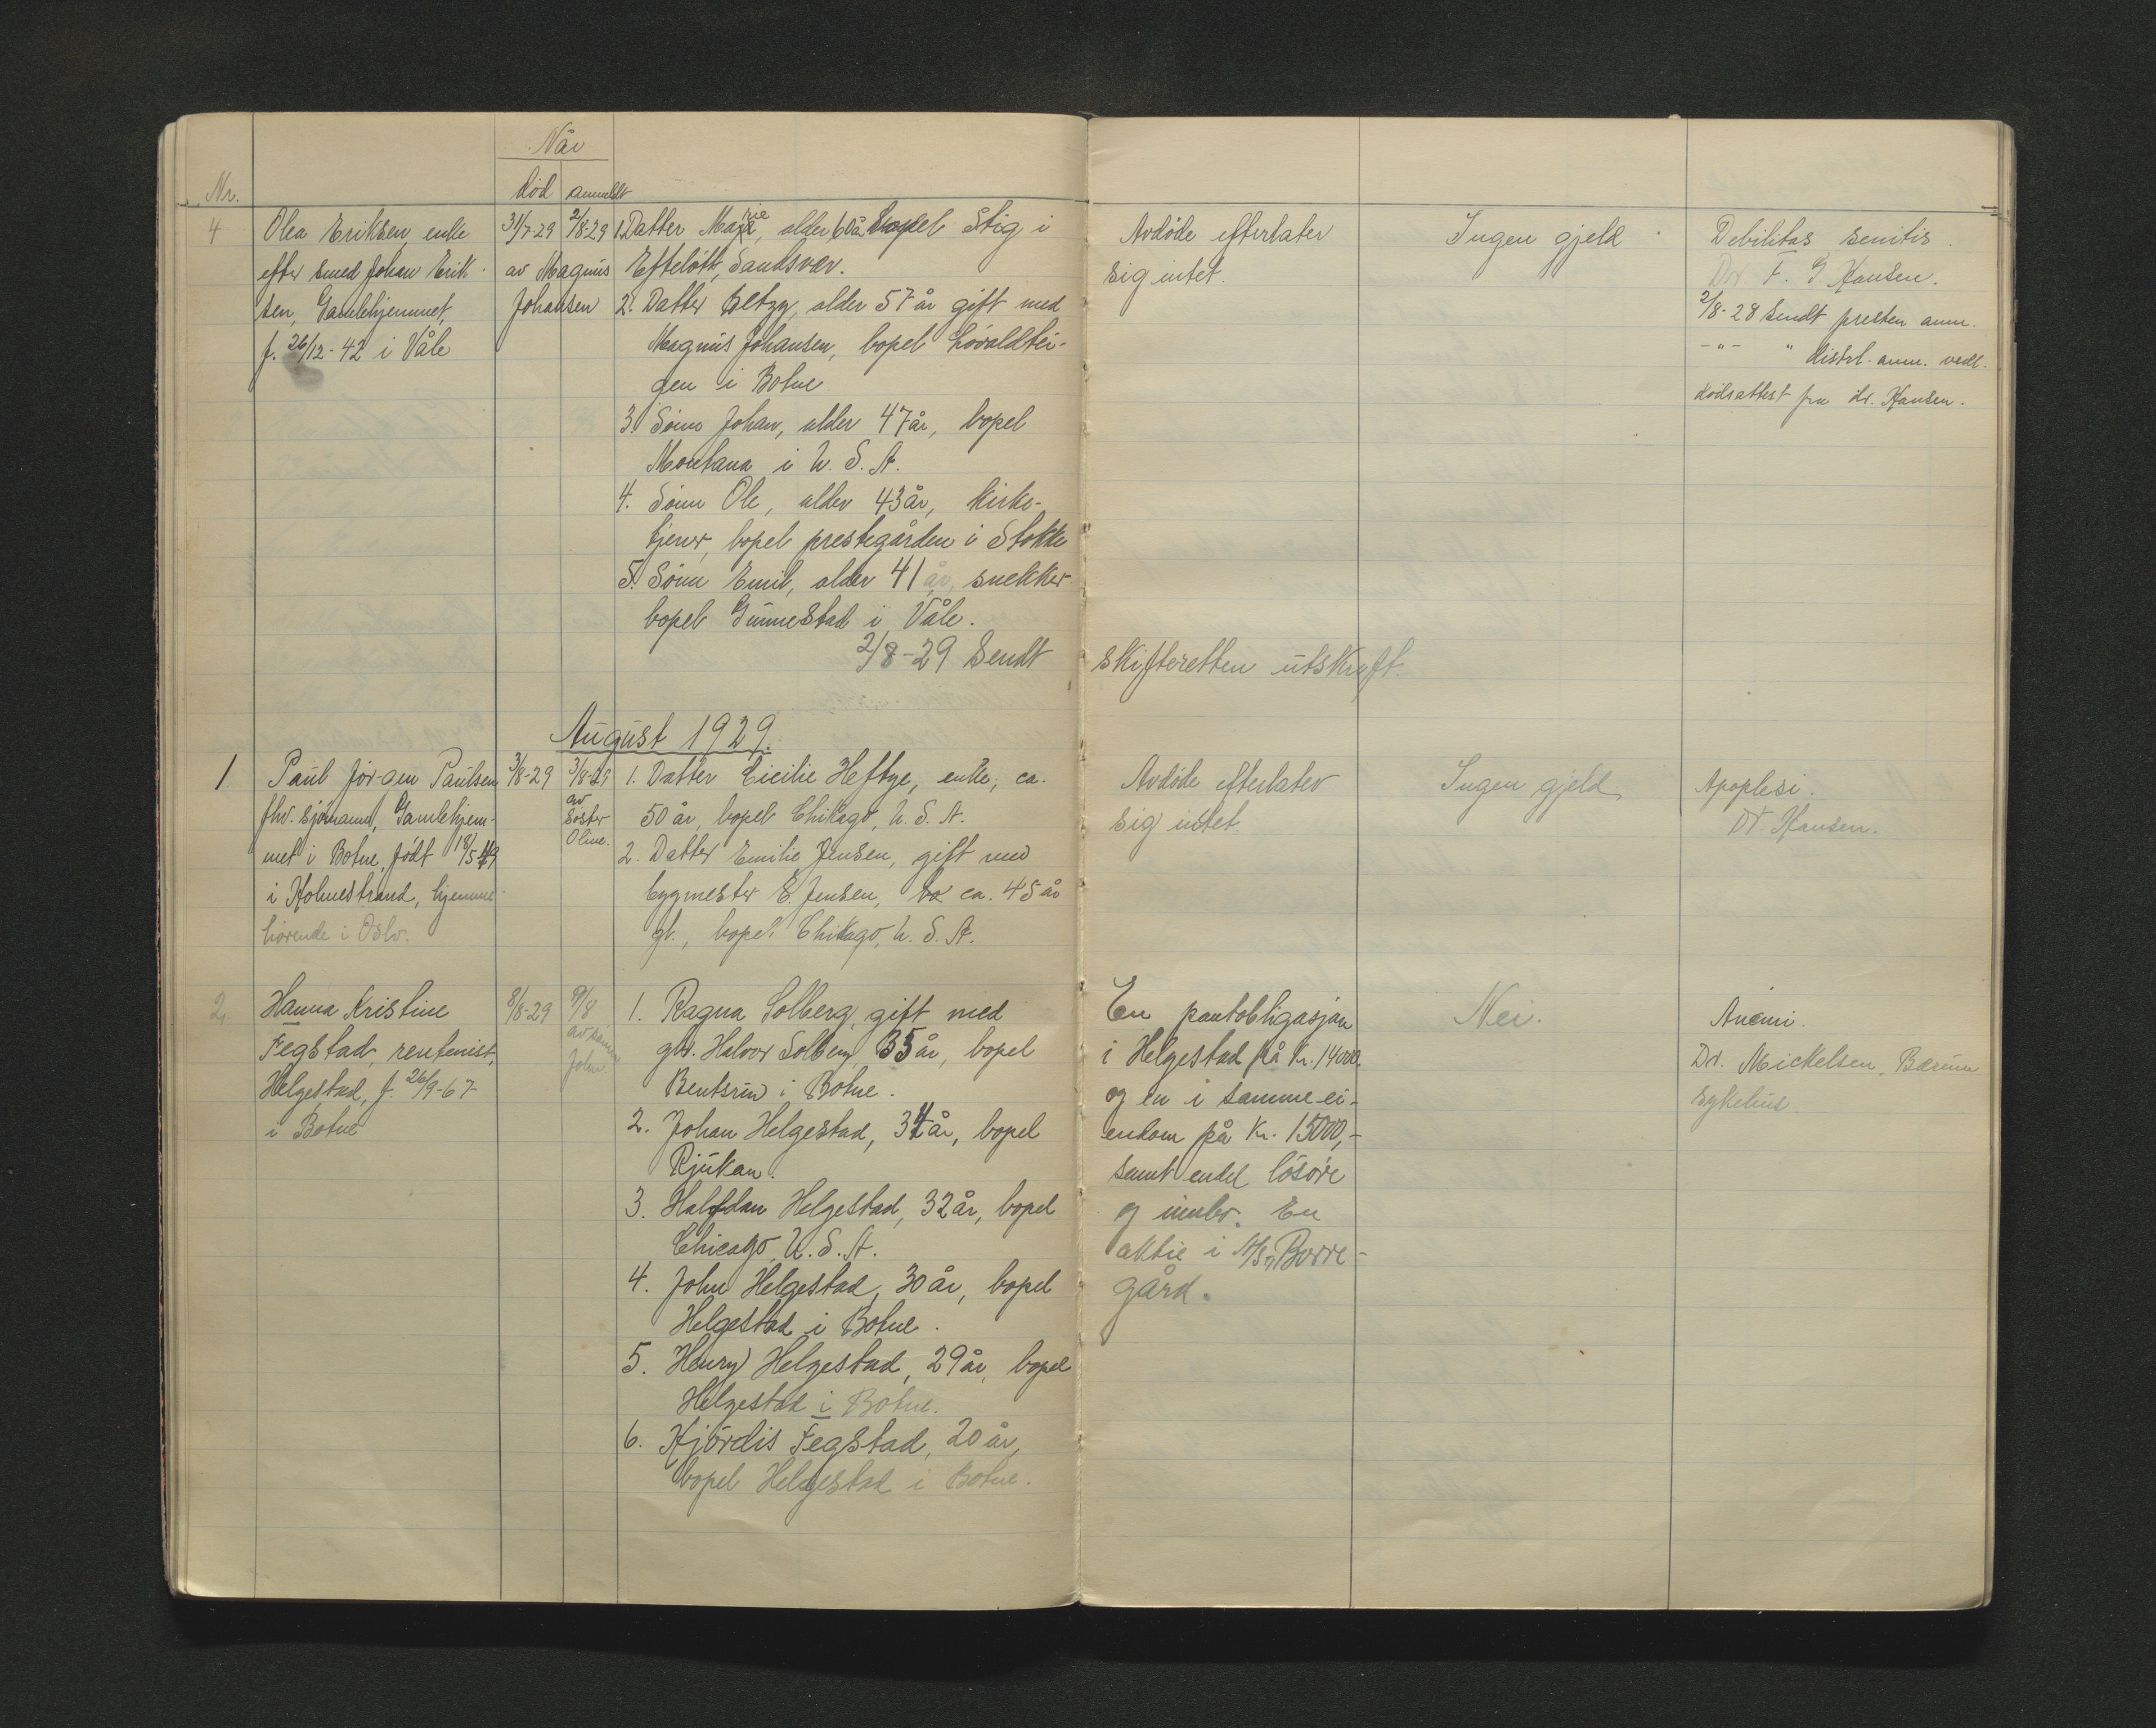 Når
Nr.
død anmeldt
4
Olea Eriksen, enke
efter smed Johan Erik-
sen, Gamlehjemmet,
f. 26/12-42 i Våle
31/7-29 2/8-29
av Magnus
Johansen
1. Datter Marie, alder 60 år bopel Stig i
Efteløtt, Sandsvær.
2. Datter Betzy, alder 57 år gift med
Magnus Johansen, bopel Løvaldtei-
gen i Botne
3. Sønn Johan, alder 47 år, bopel
Montana i U. S. A.
4. Sønn Ole, alder 43 år, kirke-
tjener, bopel prestegården i Stokke
5. Sønn Emil, alder 41 år, snekker
bopel Gunnestad i Våle.
Avdøde efterlater
sig intet.
Ingen gjeld
Debilitas senilis.
Dr. F. G. Hansen.
2/8-28 Sendt presten anm.
-"- " distrl. anm. vedl.
dødsattest fra dr. Hansen.
2/8-29 Sendt skifteretten utskrift.
August 1929.
1
Paul Jørgen Paulsen
fhv. sjømann, Gamlehjem-
met i Botne, født 18/5-49
i Holmestrand, hjemme-
hørende i Oslo.
3/8-29
3/8-29
av
Søster
Oline.
1. Datter Cicilie Heftye, enke, ca.
50 år, bopel Chikago, U. S. A.
2. Datter Emilie Jensen, gift med
bygmester E. Jensen, bo ca. 45 år
gl., bopel Chikago, U. S. A.
Avdøde efterlater
sig intet
Ingen gjeld
Apoplesi.
Dr. Hansen.
2.
Hanna Kristine
Fegstad, rentenist,
Helgestad, f. 26/9-67
i Botne
8/8-29
9/8
av sønnen
John
1. Ragna Solberg, gift med
gbr. Halvor Solberg, 35 år, bopel
Bentsrud i Botne.
2. Johan Helgestad, 34 år, bopel
Rjukan.
3. Halfdan Helgestad, 32 år, bopel
Chicago, U. S. A.
4. John Helgestad, 30 år, bopel
Helgestad i Botne.
5. Henry Helgestad, 29 år, bopel
Helgestad i Botne.
6. Hjørdis Fegstad, 20 år,
bopel Helgestad i Botne.
En pantobligasjon
i Helgestad på kr. 14000.
og en i samme ei-
endom på kr. 15000,-
samt endel løsøre
og innbo. En
aktie i A/S "Borre-
gård.
Nei.
Anemi.
Dr. Mickelsen, Bærum
sykehus.